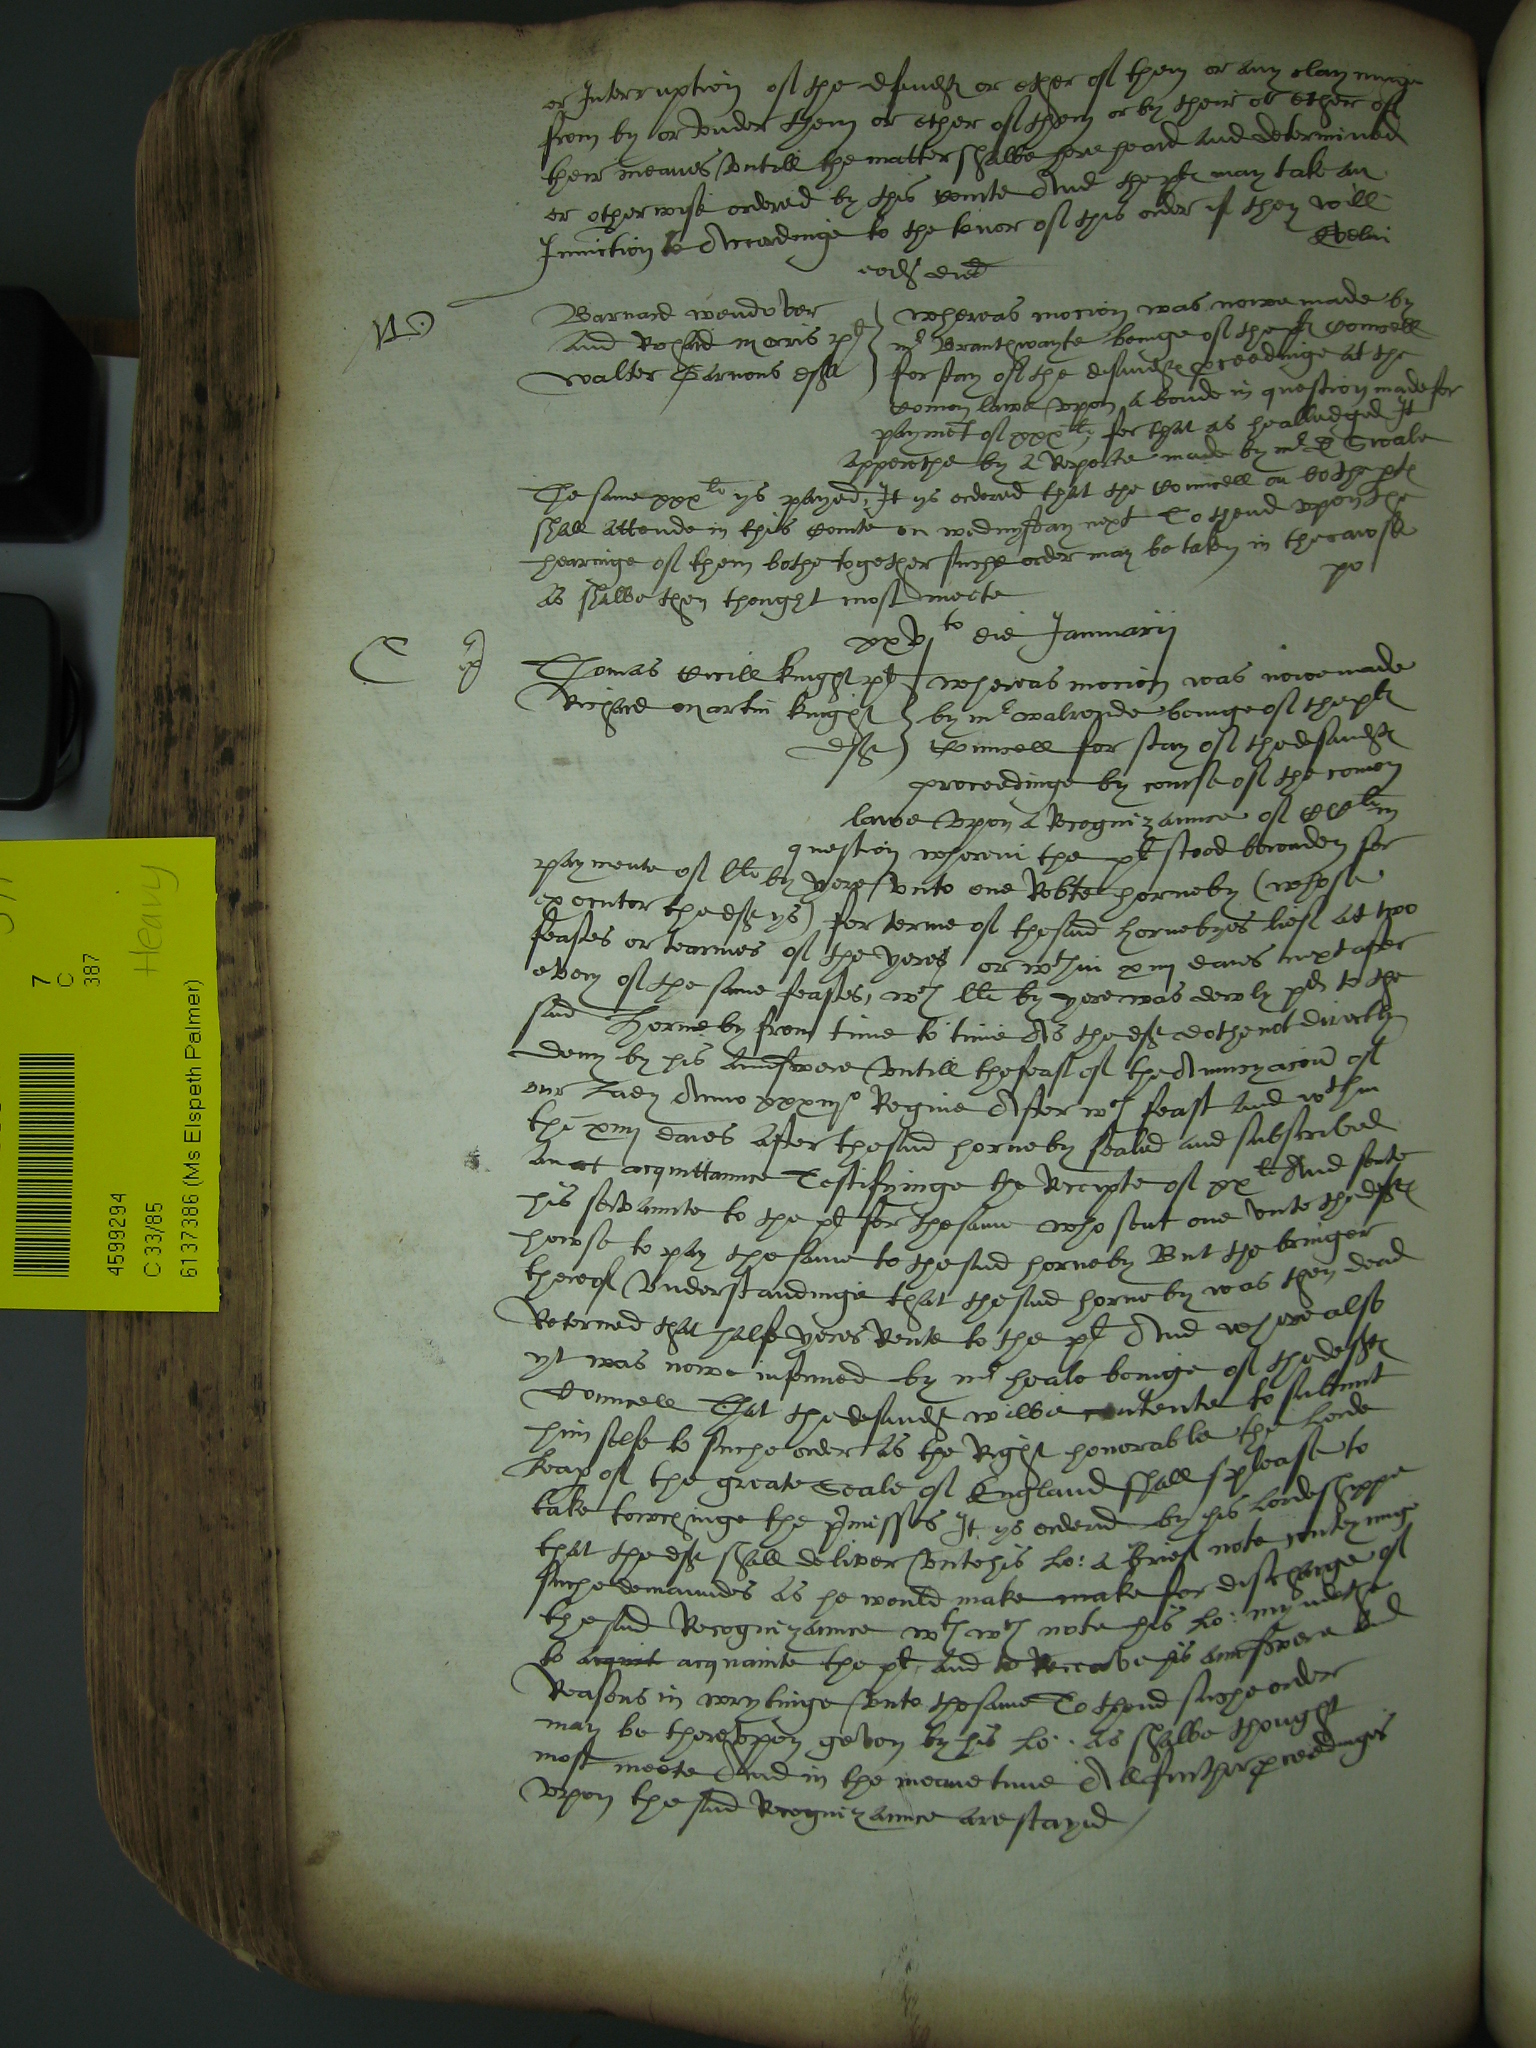 or Interruption of the defendt or ether of them or any clayminge
from by or vnder them or ether of them or by their or ether of
their meanes vntill the matter shalbe here heard and determined
or otherwise ordered by this Courte And the plt may take an
Iniunction Accordinge to the tenor of this order if they will
eodm die
Barnard wendover
And Richard morris plt
walter Parnons deft
whereas mocion was nowe made by
mr Branthwayte beinge of the plt Councell
for stay of the defendts proceedinge at the
Comon lawe vpon a bonde in question made for
paymet of xxxli, for that as he alledged It
apperethe by a Reporte made by mr D Swale
The same xxxli ys payed, It ys ordered that the Councell on bothe pts
shall attende in this Courte on wednysday next To thend vpon the
hearinge of them bothe together suche order may be taken in the cawse
as shalbe then thought most meete
po
xxvjto die Januarij
Thomas Cecill knight plt
Richard Martin knight
deft
whereas mocion was nowe made
by mr walronde beinge of the plt
Councell for stay of the defendts
proceedinge by course of the comon
lawe vpon a Recognizaunce of CCli in
question wherein the plt stood bounden for
paymente of lli by yere vnto one Robte horneby (whose
executor the deft ys) for terme of the said hornebyes lief at two
feastes or tearmes of the yeres or wthin xiiij daies next after
every of the same feastes, wch lli by yere was dewly pd to the
said Horneby from time to time As the deft dothe not directly
deny by his aunswere vntill the feast of the Annuncyacion of
our Lady Anno xxxiijo Regine After wch feast and wthin
the xiiij daies after the said horneby sealed and subscribed
an acquittaunce Testifyinge the Receypte of xxli And sente
his servaunte to the plt for the same who sent one vnto the defts
howse to pay the same to the said horneby But the bringer
thereof vnderstandinge that the said horneby was then dead
Retorned that halfe yeres Rente to the plt And where also
yt was nowe informed by mr heale beinge of the defts
Councell That the defendt wilbe contente to submit
him selfe to suche order as the Right honorable the Lorde
keap of the greate Seale of England shall please to
take towchinge the pmisses It ys ordered by his Lordeshippe
that the deft shall deliver vnto his Lo: a brief note conteyninge
suche demaundes as he would make make for discharge of
the said Recognizaunce wth wch note his Lo: myndethe
to acquainte the plt, and to Receave his aunswere and
Reasons in wrytinge vnto the same To thend suche order
may be therevpon geven by his Lo: as shalbe thought
most meete And in the meane time All further pceedinges
vpon the said Recognizaunce are stayed
Heavy
7
C
387
4599294
C 33/85
6137386 (Ms Elspeth Palmer)